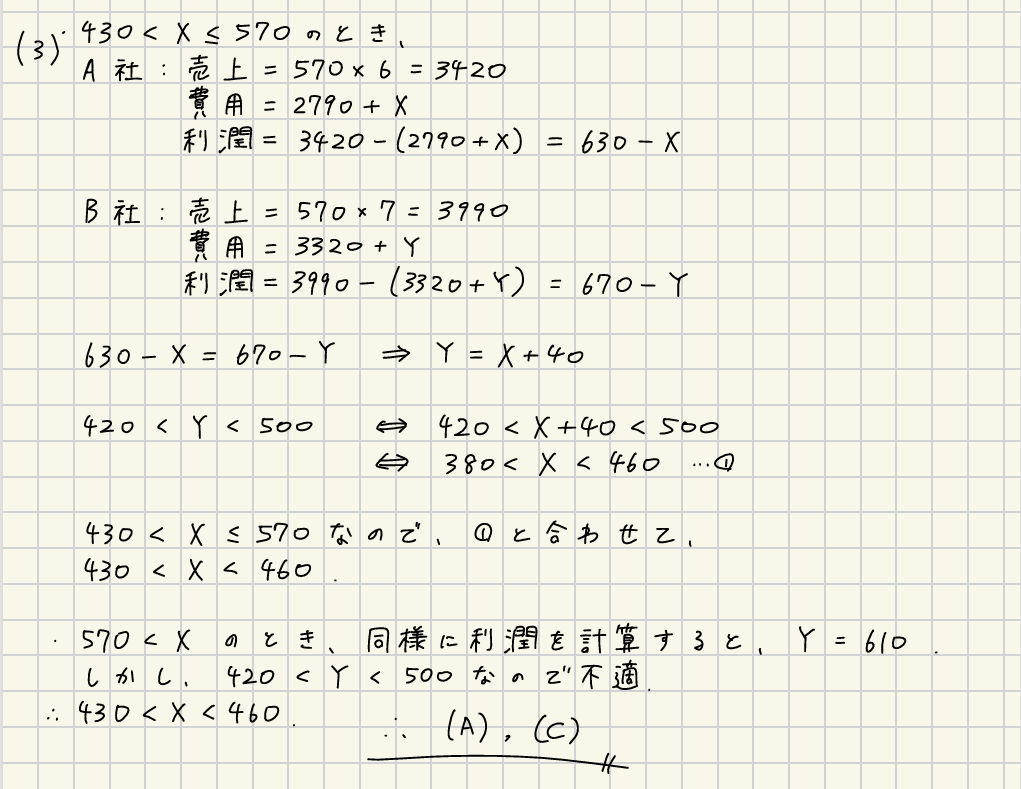 (3)・430 < X ≤ 570 のとき、
A 社 : 売上 = 570 × 6 = 3420
費用 = 2790 + X
利潤 = 3420 − (2790 + X) = 630 − X
B 社 : 売上 = 570 × 7 = 3990
費用 = 3320 + Y
利潤 = 3990 − (3320 + Y) = 670 − Y
630 − X = 670 − Y ⇒ Y = X + 40
420 < Y < 500 ⇔ 420 < X + 40 < 500
⇔ 380 < X < 460 …①
430 < X ≤ 570 なので、①と合わせて、
430 < X < 460 .
・570 < X のとき、同様に利潤を計算すると、Y = 610 .
しかし、420 < Y < 500 なので不適.
∴ 430 < X < 460 .
∴ (A), (C)